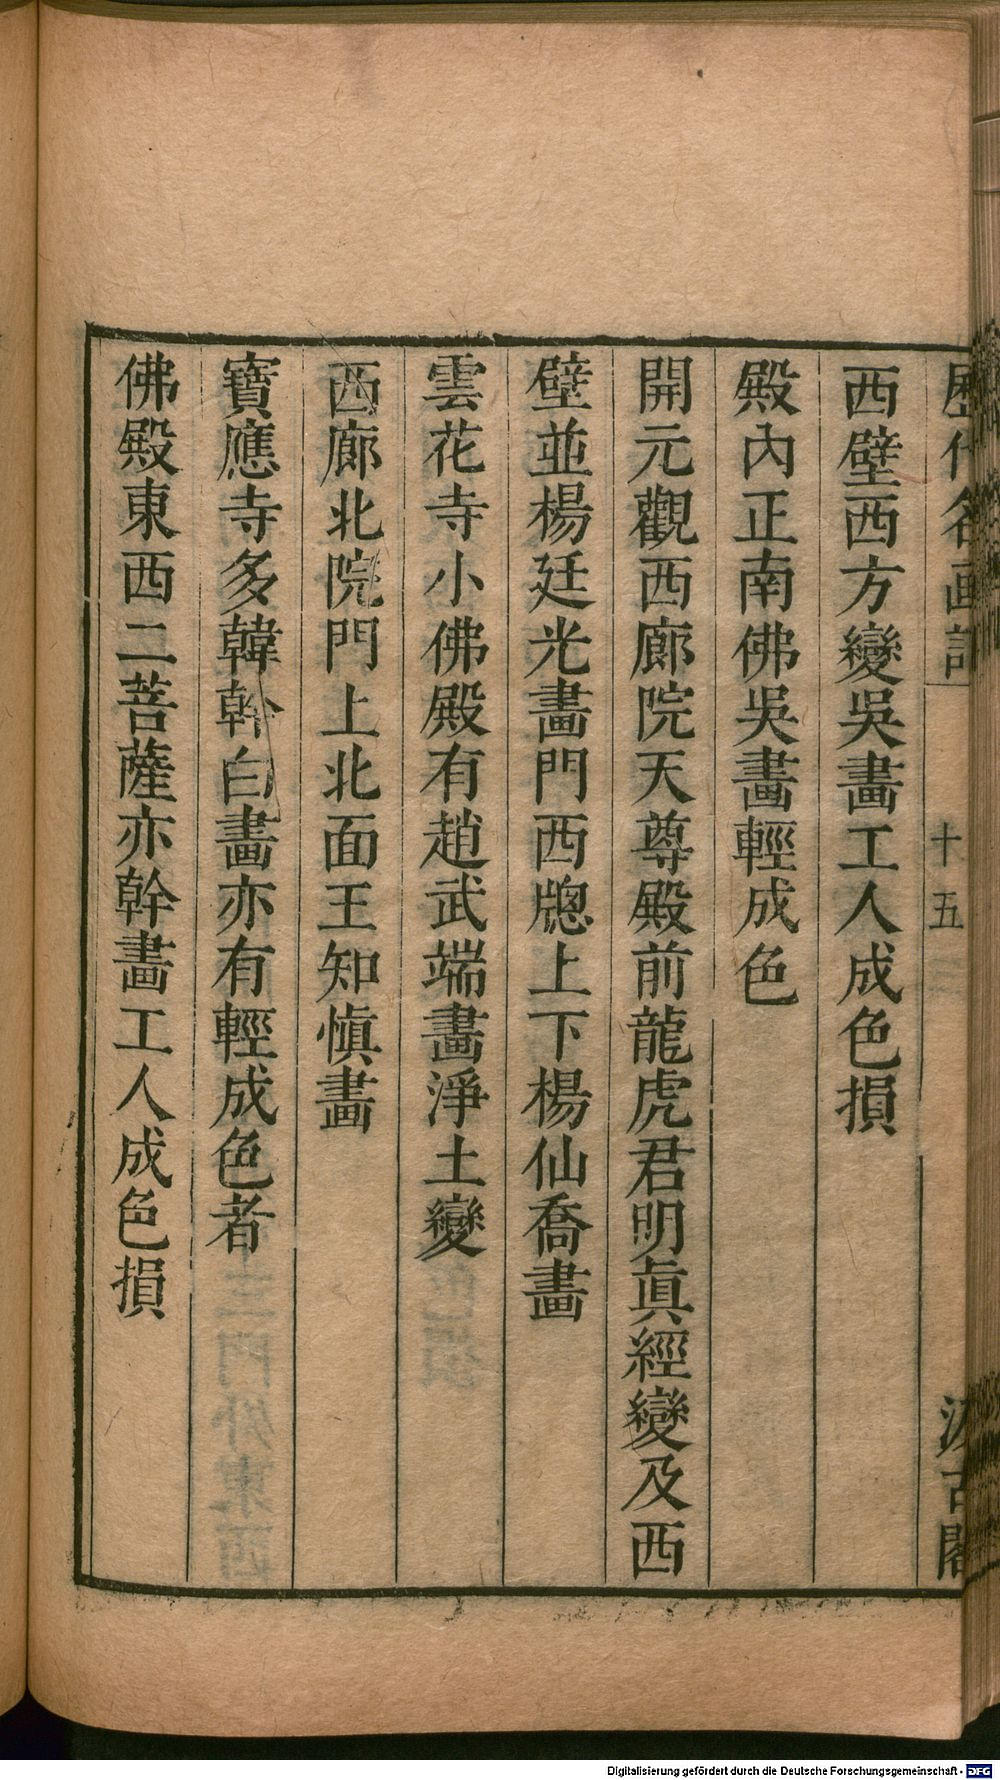 歷代名畫記
十五
汲古閣
西壁西方變吳畫工人成色損
殿內正南佛吳畫輕成色
開元觀西廊院天尊殿前龍虎君明眞經變及西
壁並楊廷光畫門西牕上下楊仙喬畫
雲花寺小佛殿有趙武端畫淨土變
西廊北院門上北面王知愼畫
寶應寺多韓幹白畫亦有輕成色者
佛殿東西二菩薩亦幹畫工人成色損
Digitalisierung gefördert durch die Deutsche Forschungsgemeinschaft - DFG